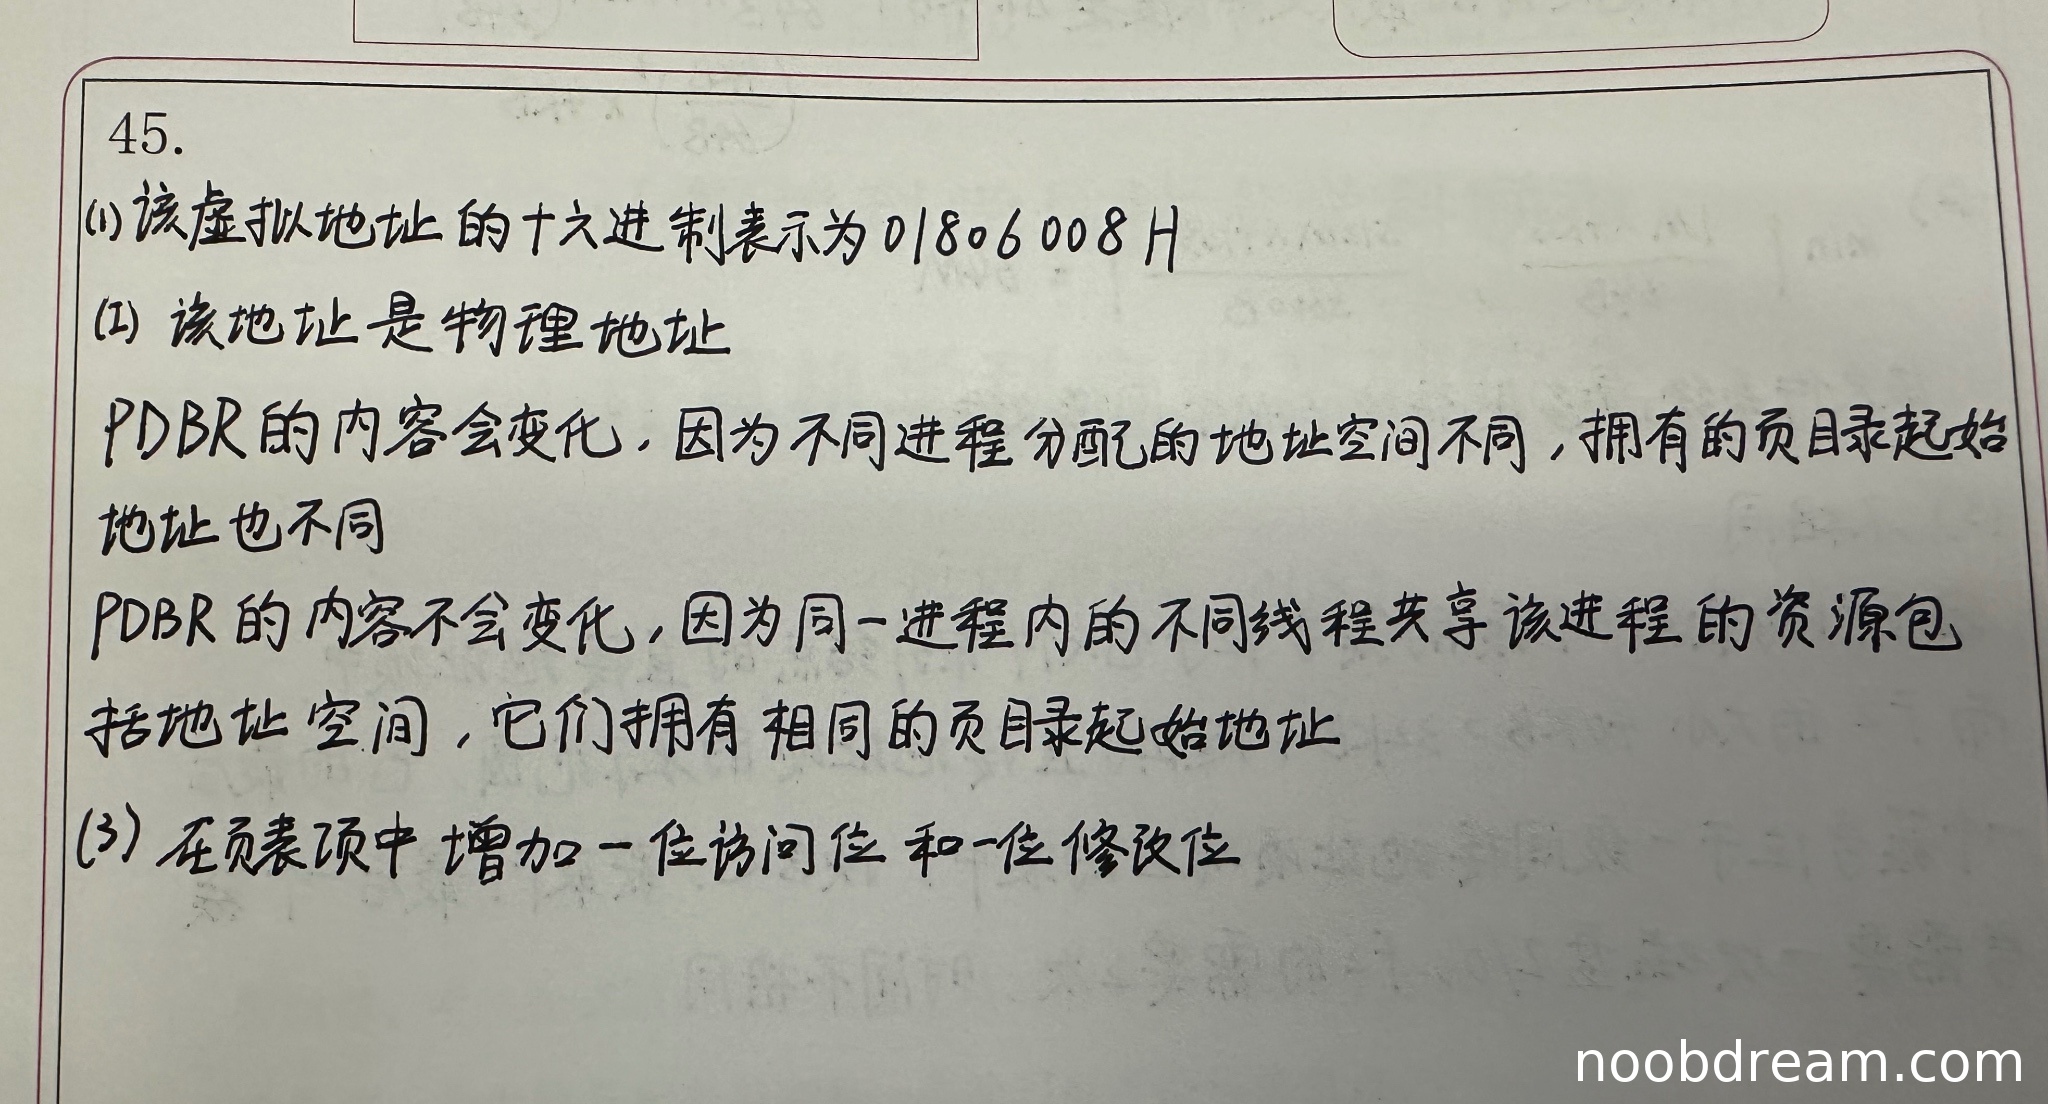 45.
(1)该虚拟地址的十六进制表示为01806008H
(2) 该地址是物理地址
PDBR的内容会变化,因为不同进程分配的地址空间不同,拥有的页目录起始
地址也不同
PDBR的内容不会变化,因为同一进程内的不同线程共享该进程的资源包
括地址空间,它们拥有相同的页目录起始地址
(3) 在页表项中增加一位访问位和一位修改位
noobdream.com